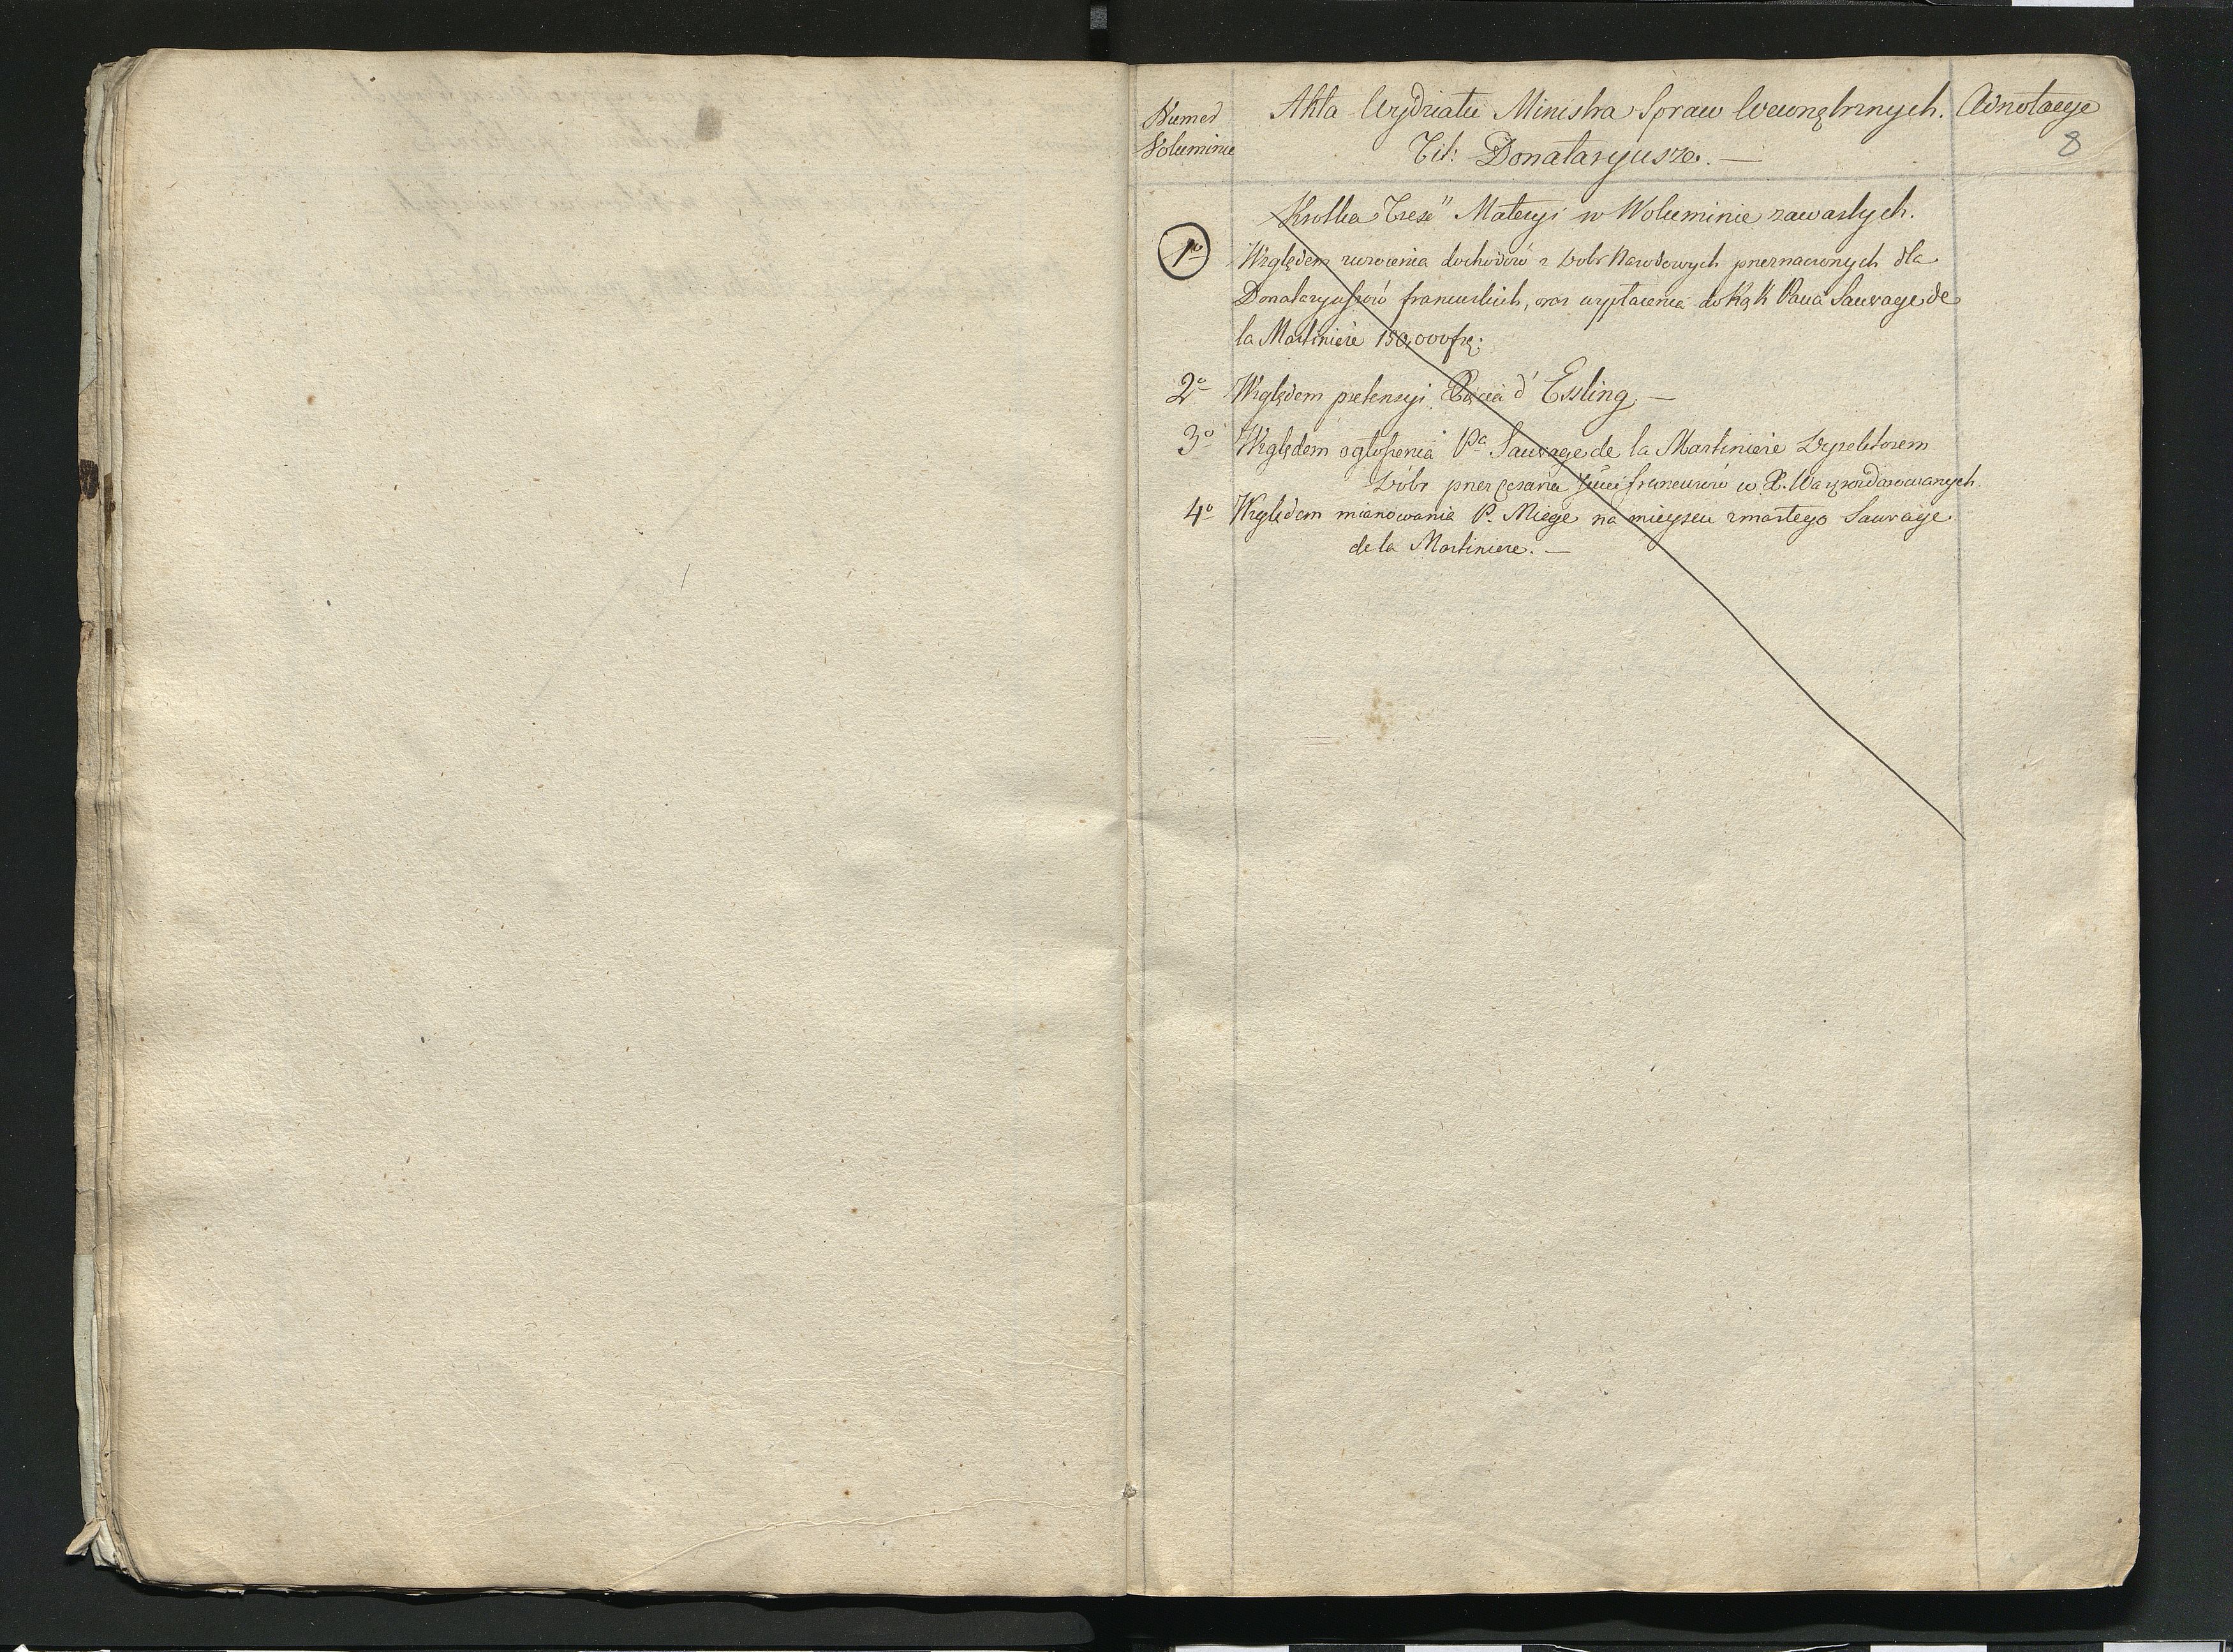 Numer
Voluminu
Akta Wydziału Ministra Spraw Wewnętrznych.
Tit: Donataryusze. —
Adnotacye
8
Krotka Treść Materyi w Woluminie zawartych.
1º Względem zwrócenia dochodów z Dobr Narodowych przeznaczonych dla
Donataryuszów francuskich, oraz wypłacenia do Rąk Pana Sauvage de
la Martiniere 150,000 fr:
2º Względem pretensyi Xięcia d'Essling. —
3º Względem ogłoszenia Pa Sauvage de la Martiniere Dyrektorem
Dóbr przez Cesarza francuzów w X. Wa
4º Względem mianowania P. Miege na mieyscu zmarłego Sauvage
de la Martiniere. —